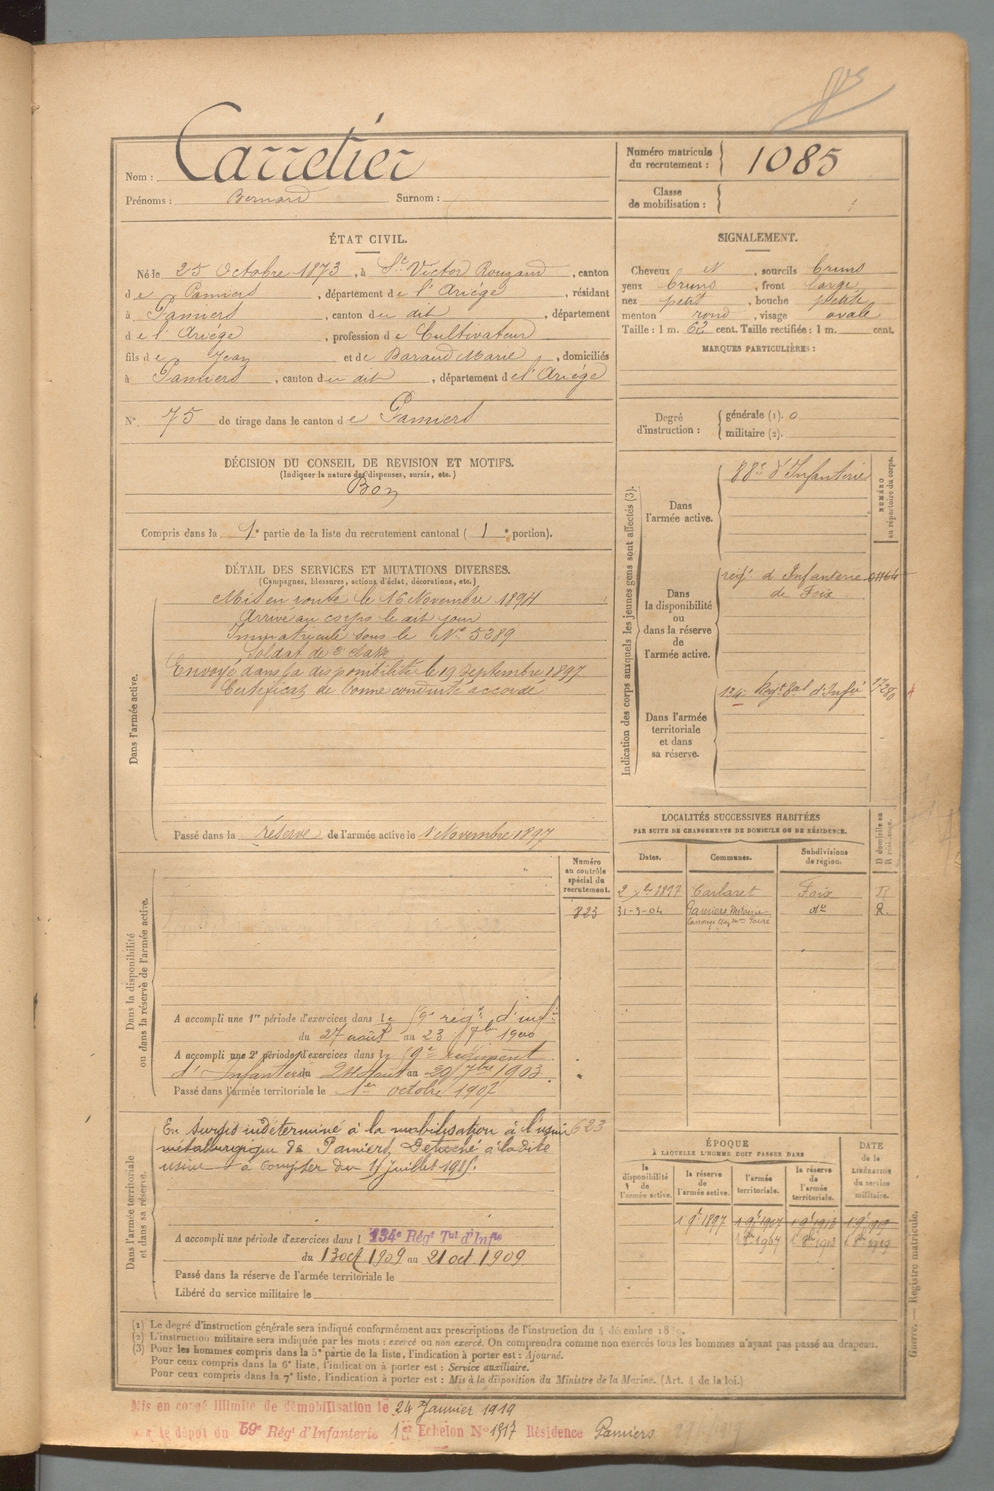 Nom : Carretier
Prénoms : Bernard Surnom :
Numéro matricule du recrutement : 1085
Classe de mobilisation :
ÉTAT CIVIL.
Né le 25 Octobre 1873, à St Victor Rouzaud, canton
de Pamiers, département de l'Ariège, résidant
à Pamiers, canton du dit, département
de l'Ariège, profession de Cultivateur
fils de Jean et de Baraud Marie, domiciliés
à Pamiers, canton du dit, département de l'Ariège
N° 75 de tirage dans le canton de Pamiers
SIGNALEMENT.
Cheveux N, sourcils bruns
yeux bruns, front large
nez petit, bouche petite
menton rond, visage ovale
Taille : 1 m. 62 cent. Taille rectifiée : 1 m. cent.
MARQUES PARTICULIÈRES :
Degré d'instruction : générale (1). 0
militaire (2).
DÉCISION DU CONSEIL DE REVISION ET MOTIFS.
(Indiquer la nature des dispenses, sursis, etc.)
Bon
Compris dans la 1e partie de la liste du recrutement cantonal ( 1 e portion).
DÉTAIL DES SERVICES ET MUTATIONS DIVERSES.
(Campagnes, blessures, actions d'éclat, décorations, etc.)
Dans l'armée active.
Mis en route le 16 Novembre 1894
Arrivé au corps le dit jour
Immatriculé sous le N° 5289
Soldat de 2e classe
Envoyé dans la disponibilité le 19 Septembre 1897
Certificat de bonne conduite accordé
Passé dans la réserve de l'armée active le 1 Novembre 1897
Indication des corps auxquels les jeunes gens sont affectés (3).
NUMÉRO au répertoire du corps.
Dans l'armée active.
88e d'Infanterie
Dans la disponibilité ou dans la réserve de l'armée active.
régt d'Infanterie
de Foix
Dans l'armée territoriale et dans sa réserve.
134 Régt tal d'Infie
LOCALITÉS SUCCESSIVES HABITÉES
PAR SUITE DE CHANGEMENTS DE DOMICILE OU DE RÉSIDENCE.
Dates. Communes. Subdivisions de région. D domicile ou R résidence.
2 1897 Carlaret Foix R
31-3-04 Pamiers do R.
Numéro au contrôle spécial du recrutement.
823
Dans la disponibilité ou dans la réserve de l'armée active.
A accompli une 1re période d'exercices dans le régt d'infie
du 27 août au 23 7bre 1900
A accompli une 2e période d'exercices dans le régiment
d'Infanterie du 24 Août au 20 7bre 1903.
Passé dans l'armée territoriale le 1er octobre 1907
Dans l'armée territoriale et dans sa réserve.
En sursis indéterminé à la mobilisation à l'usine 623
métallurgique de Pamiers, Détaché à la dite
usine à compter du juillet 1915.
A accompli une période d'exercices dans l 134e Régt Tal d'Infie
du 13 oct 1909 au 21 oct 1909
Passé dans la réserve de l'armée territoriale le
Libéré du service militaire le
ÉPOQUE
À LAQUELLE L'HOMME DOIT PASSER DANS
la disponibilité de l'armée active. la réserve de l'armée active. l'armée territoriale. la réserve de l'armée territoriale. DATE de la LIBÉRATION du service militaire.
1 9e 1897 1 9e 1907 1 9e 1913 1 9e 1919
Guerre. — Registre matricule.
(1) Le degré d'instruction générale sera indiqué conformément aux prescriptions de l'instruction du 4 décembre
(2) L'instruction militaire sera indiquée par les mots : exercé ou non exercé. On comprendra comme non exercés tous les hommes n'ayant pas passé au drapeau.
(3) Pour les hommes compris dans la 5e partie de la liste, l'indication à porter est : Ajourné.
Pour ceux compris dans la 6e liste, l'indication à porter est : Service auxiliaire.
Pour ceux compris dans la 7e liste, l'indication à porter est : Mis à la disposition du Ministre de la Marine. (Art. 4 de la loi.)
Mis en congé illimité de démobilisation le 24 Janvier 1919
le dépôt du 59e Régt d'Infanterie 1er Echelon N° 1517 Résidence Pamiers